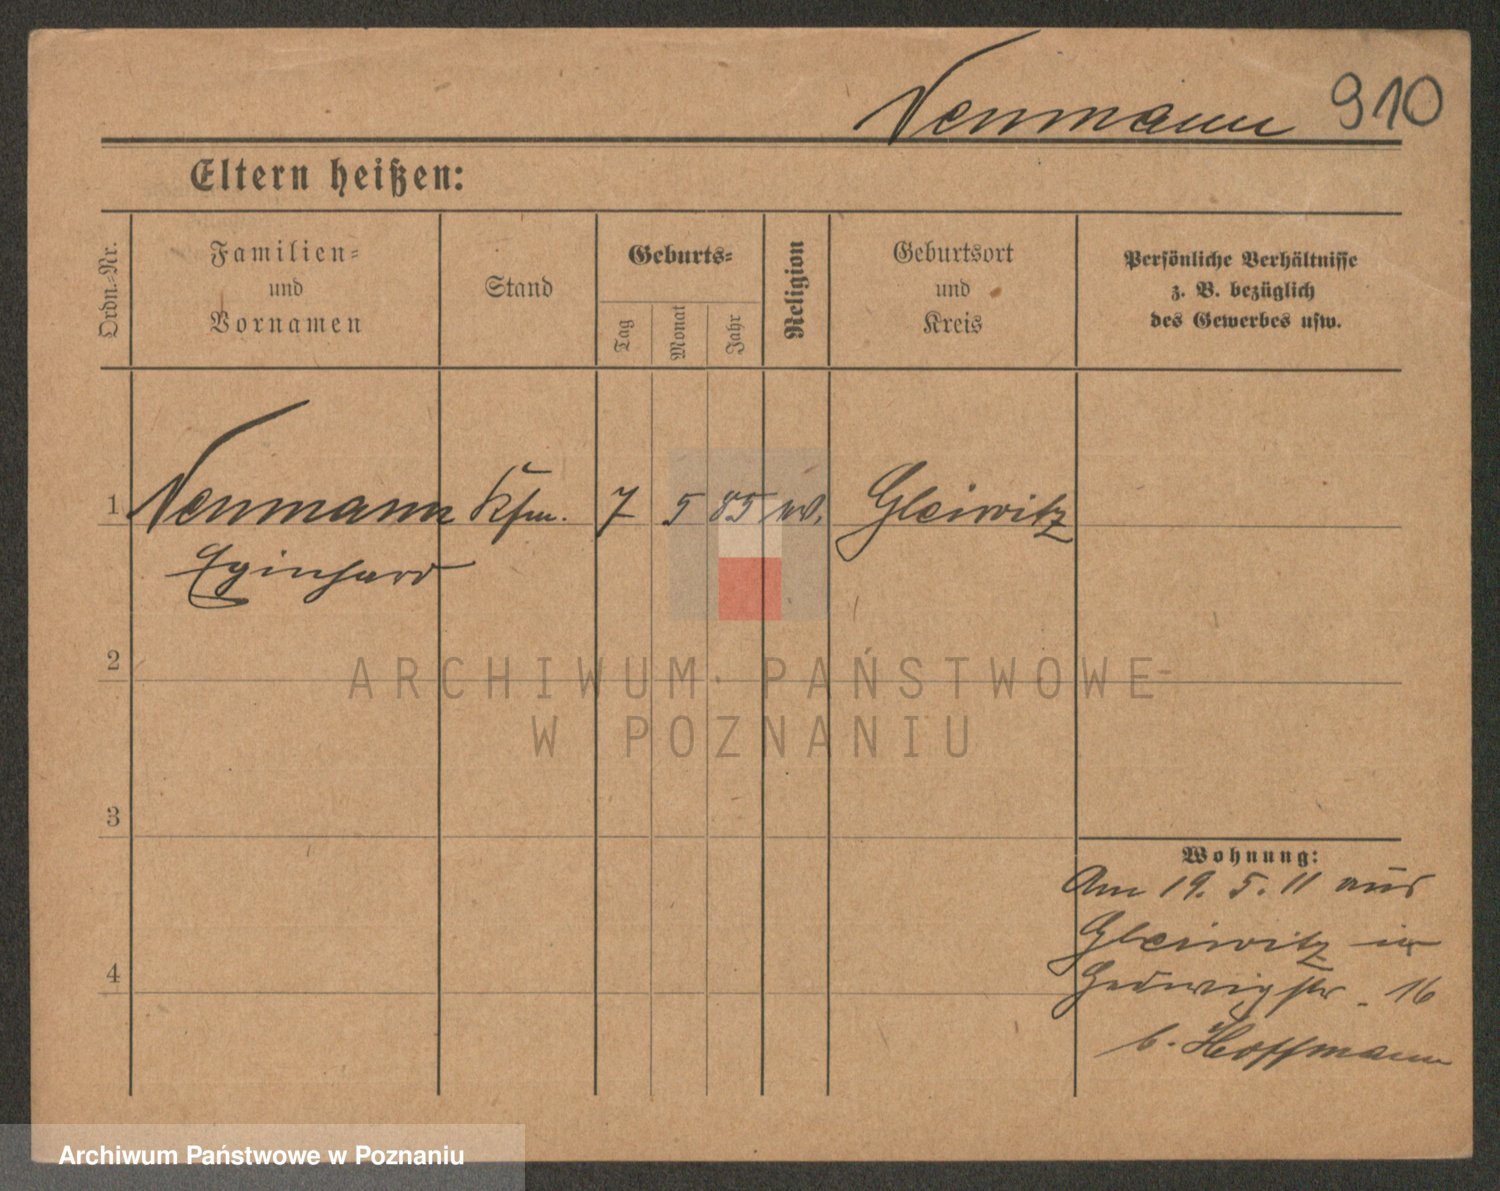 Neumann 910
Eltern heißen:
Ordn.-Nr.
Familien-
und
Vornamen
Stand
Geburts-
Tag
Monat
Jahr
Religion
Geburtsort
und
Kreis
Persönliche Verhältnisse
z. B. bezüglich
des Gewerbes usw.
1 Neumann Kfm. 7 5 85 Gleiwitz
Eginhard
2
3
4
Wohnung:
Am 19. 5. 11 aus
Gleiwitz in
Hedwigstr. 16
b. Hoffmann
ARCHIWUM PAŃSTWOWE
W POZNANIU
Archiwum Państwowe w Poznaniu